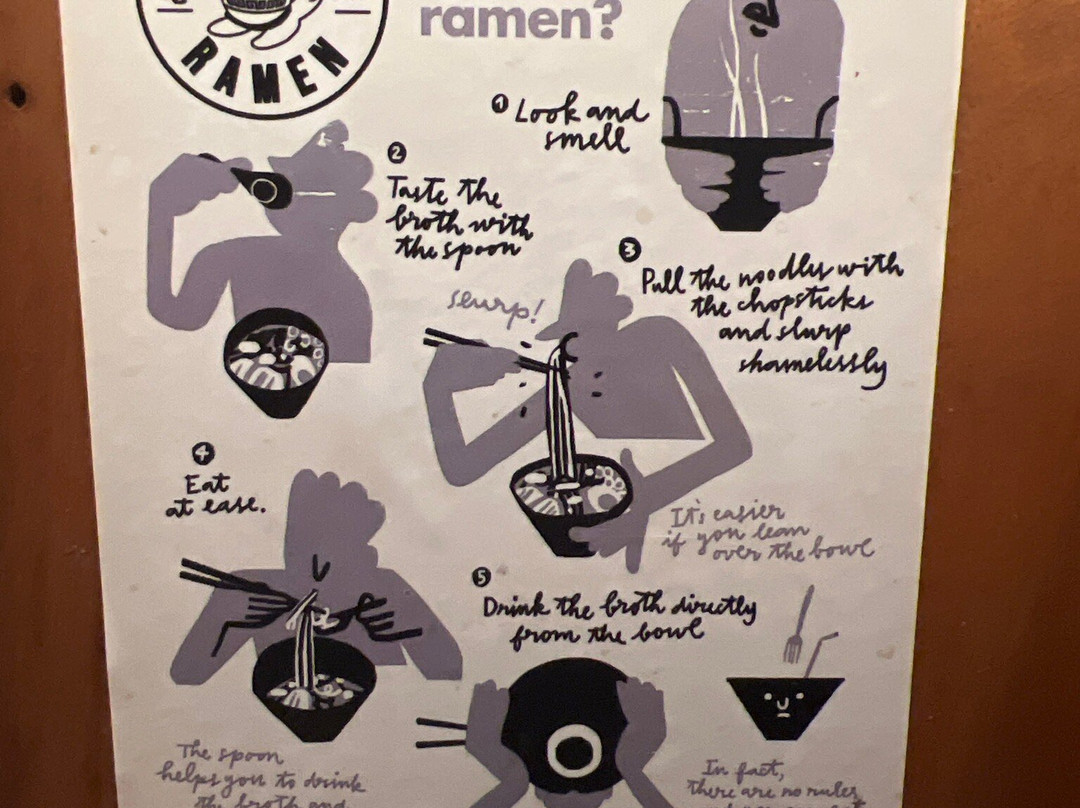 RAMEN
ramen?
1 Look and
smell
2
Taste the
broth with
the spoon
3
Pull the noodles with
the chopsticks
and slurp
shamelessly
slurp!
It's easier
if you lean
over the bowl
4
Eat
at ease.
The spoon
helps you to drink
the broth and
5
Drink the broth directly
from the bowl
In fact,
there are no rules,